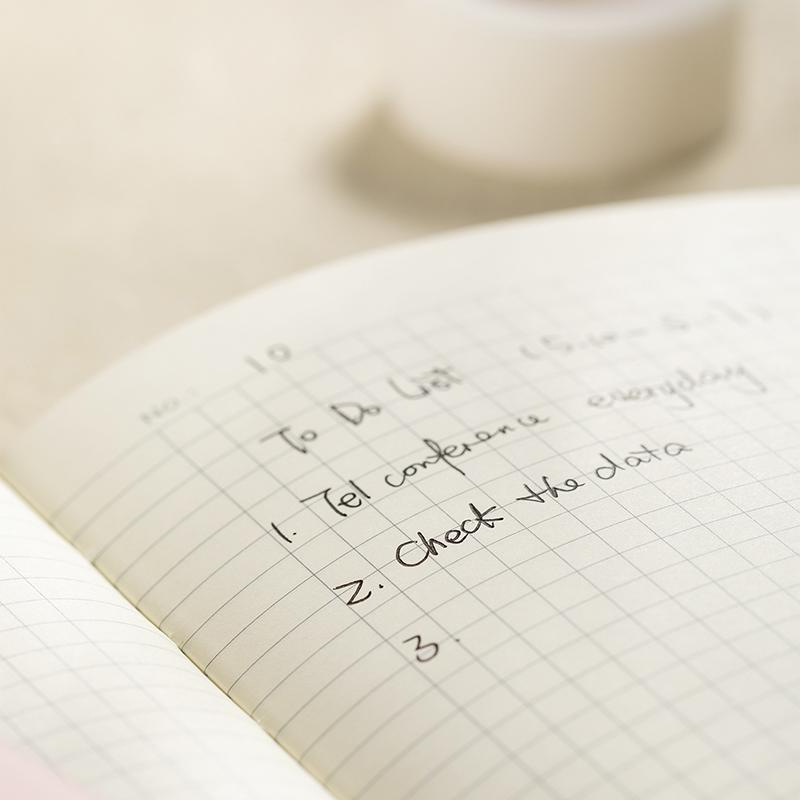 No. 10
To Do List
1. Tel conference everyday
2. Check the data
3.